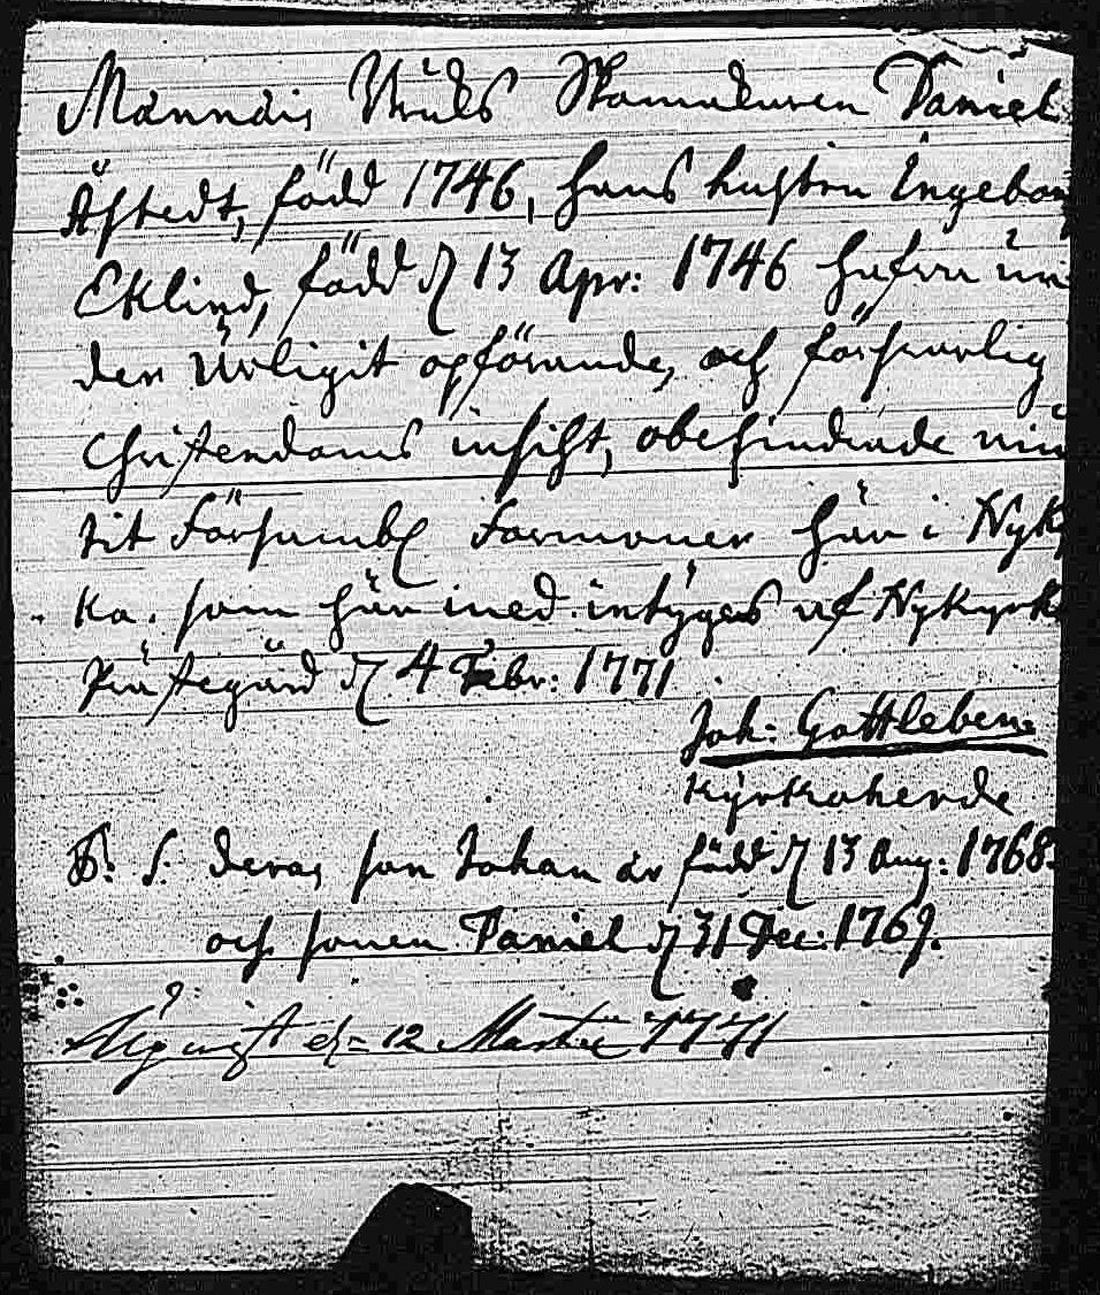 Mannäis Bruks Hammarsmen Daniel
Åhstedt, född 1746, hans hustru Engebor
Eklind, född d 13 Apr: 1746 hafva un
der ärligit opförande, och försvarlig
Christendoms insicht, obehindrade nu
tit Försambl förmoner här i Nyk
ka. som här med intygas af Nykyrk
Prästegård d 4 Febr: 1771
Joh: Gottleben
Kyrkoherde
P. S. deras son Johan är född d 13 Aug: 1768.
och sonen Daniel d 31 Dec: 1769.
d 12 Martii 1771